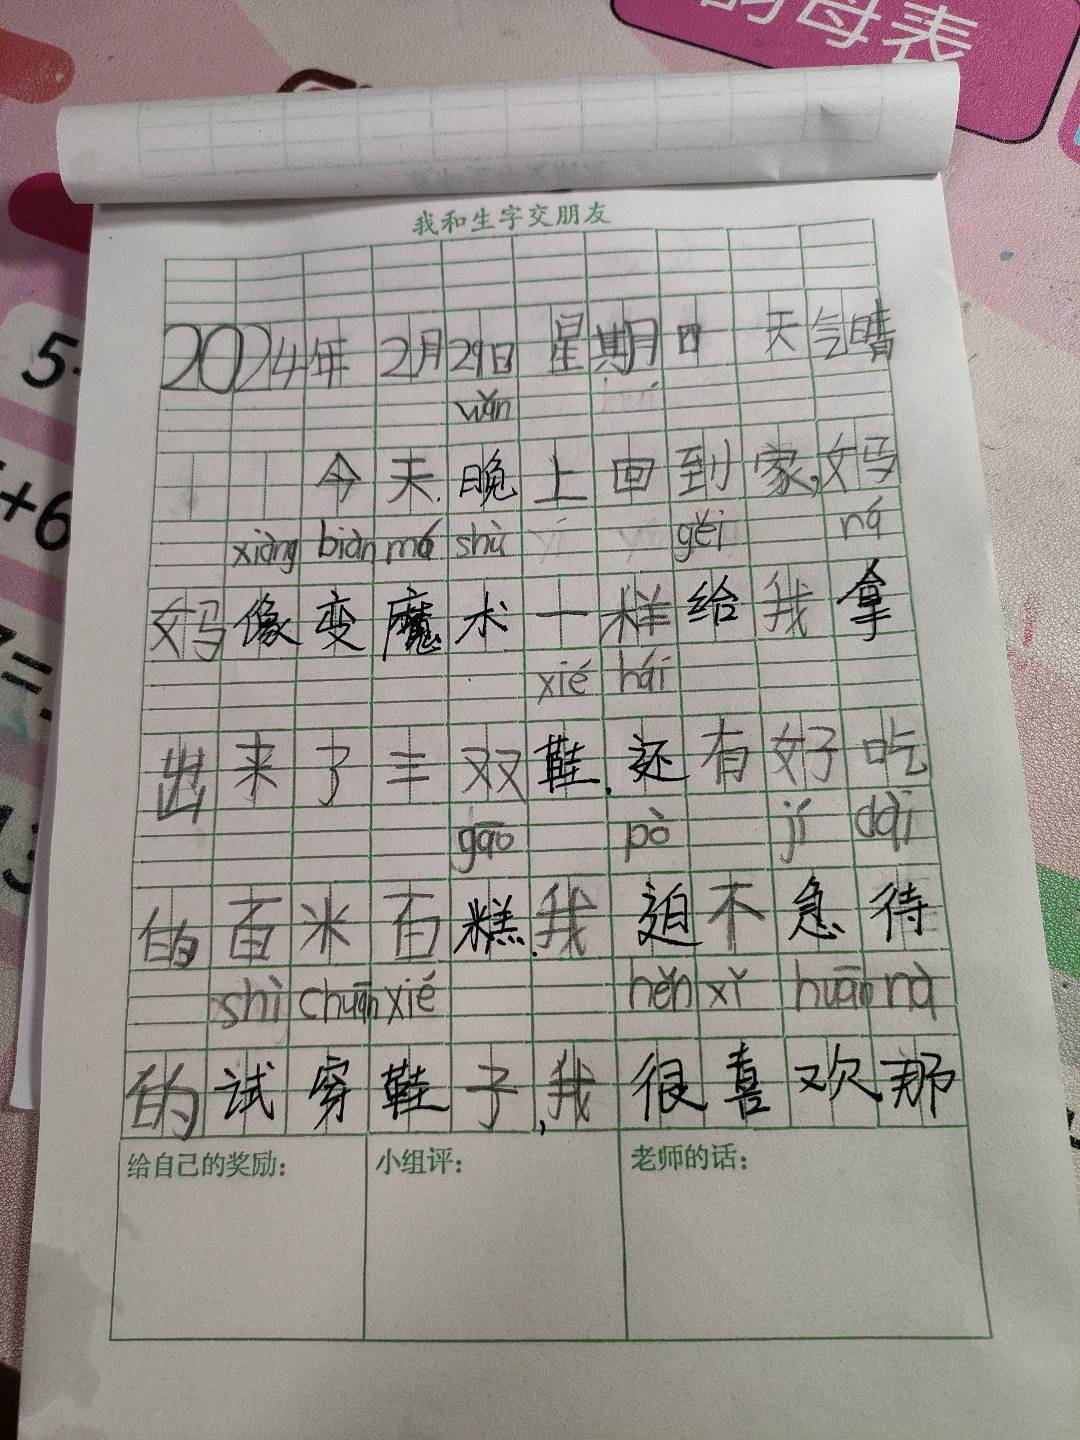 的母表
我和生字交朋友
2024年 2月29日 星期四 天气晴
wǎn
今天,晚上回到家,妈
xiàng biàn mó shù gěi ná
妈像变魔术一样给我拿
xié hái
出来了三双鞋,还有好吃
gāo pò jí dài
的百米百糕.我迫不急待
shì chuān xié hěn xǐ huān nà
的试穿鞋子,我很喜欢那
给自己的奖励: 小组评: 老师的话: